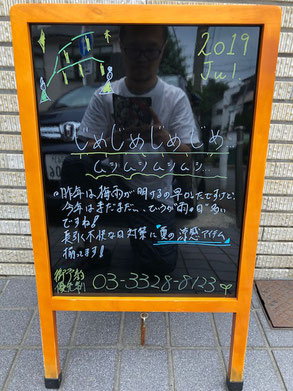 2019
Jul.
じめじめじめじめ…
ムシムシムシムシ…
昨年は梅雨が明けるの早かったですけど、
今年はまだまだ… というか雨の日多い
ですね!
長引く不快な日対策に夏の涼感アイテム
揃ってます!
御予約
優先制 03-3328-8123